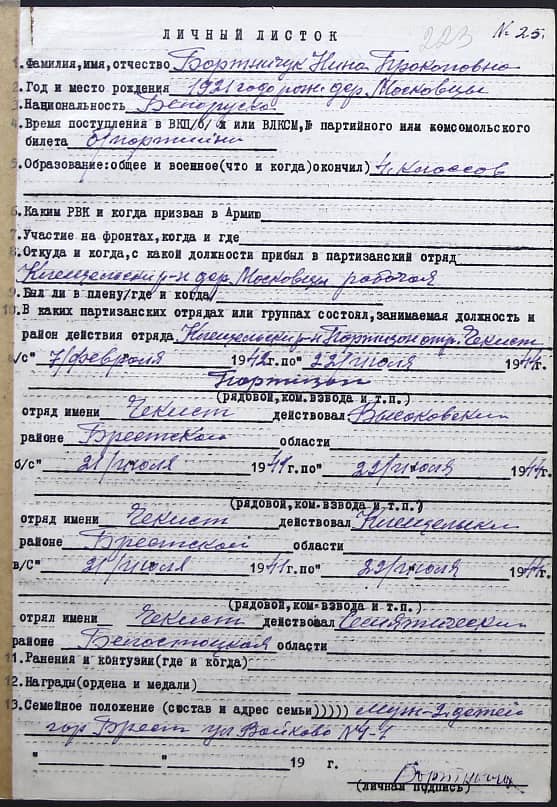 ЛИЧНЫЙ ЛИСТОК 223 № 25.
1. Фамилия, имя, отчество Бортничук Нина Прокоповна
2. Год и место рождения 1921 года рожд. дер. Московцы
3. Национальность Белоруска
4. Время поступления в ВКП/б/ я или ВЛКСМ, № партийного или комсомольского
билета б/партийна
5. Образование: общее и военное (что и когда) окончил) 4 классов
6. Каким РВК и когда призван в Армию
7. Участие на фронтах, когда и где
8. Откуда и когда, с какой должности прибыл в партизанский отряд
Клещельский р-н дер. Московцы рабочая
9. Был ли в плену/где и когда/
10. В каких партизанских отрядах или группах состоял, занимаемая должность и
район действия отряда Клещельский р-н Партизан отр. Чекист
а/с" 7/февраля 1942 г. по" 22/июля 1944 г.
Партизан
(рядовой, ком. взвода и т.п.)
отряд имени Чекист действовал Высоковский
районе Брестской области
б/с" 21/июля 1941 г. по" 22/июля 1944 г.
(рядовой, ком. взвода и т.п.)
отряд имени Чекист действовал Клещельски
районе Брестской области
в/с" 21/июля 1941 г. по" 22/июля 1944 г.
(рядовой, ком. взвода и т.п.)
отрял имени Чекист действовал
районе Белостоцкая области
11. Ранения и контузии (где и когда)
12. Награды (ордена и медали)
13. Семейное положение (состав и адрес семьи))))) муж - 2 детей
гор Брест ул Войково №
" " 19 г.
(личная подпись)